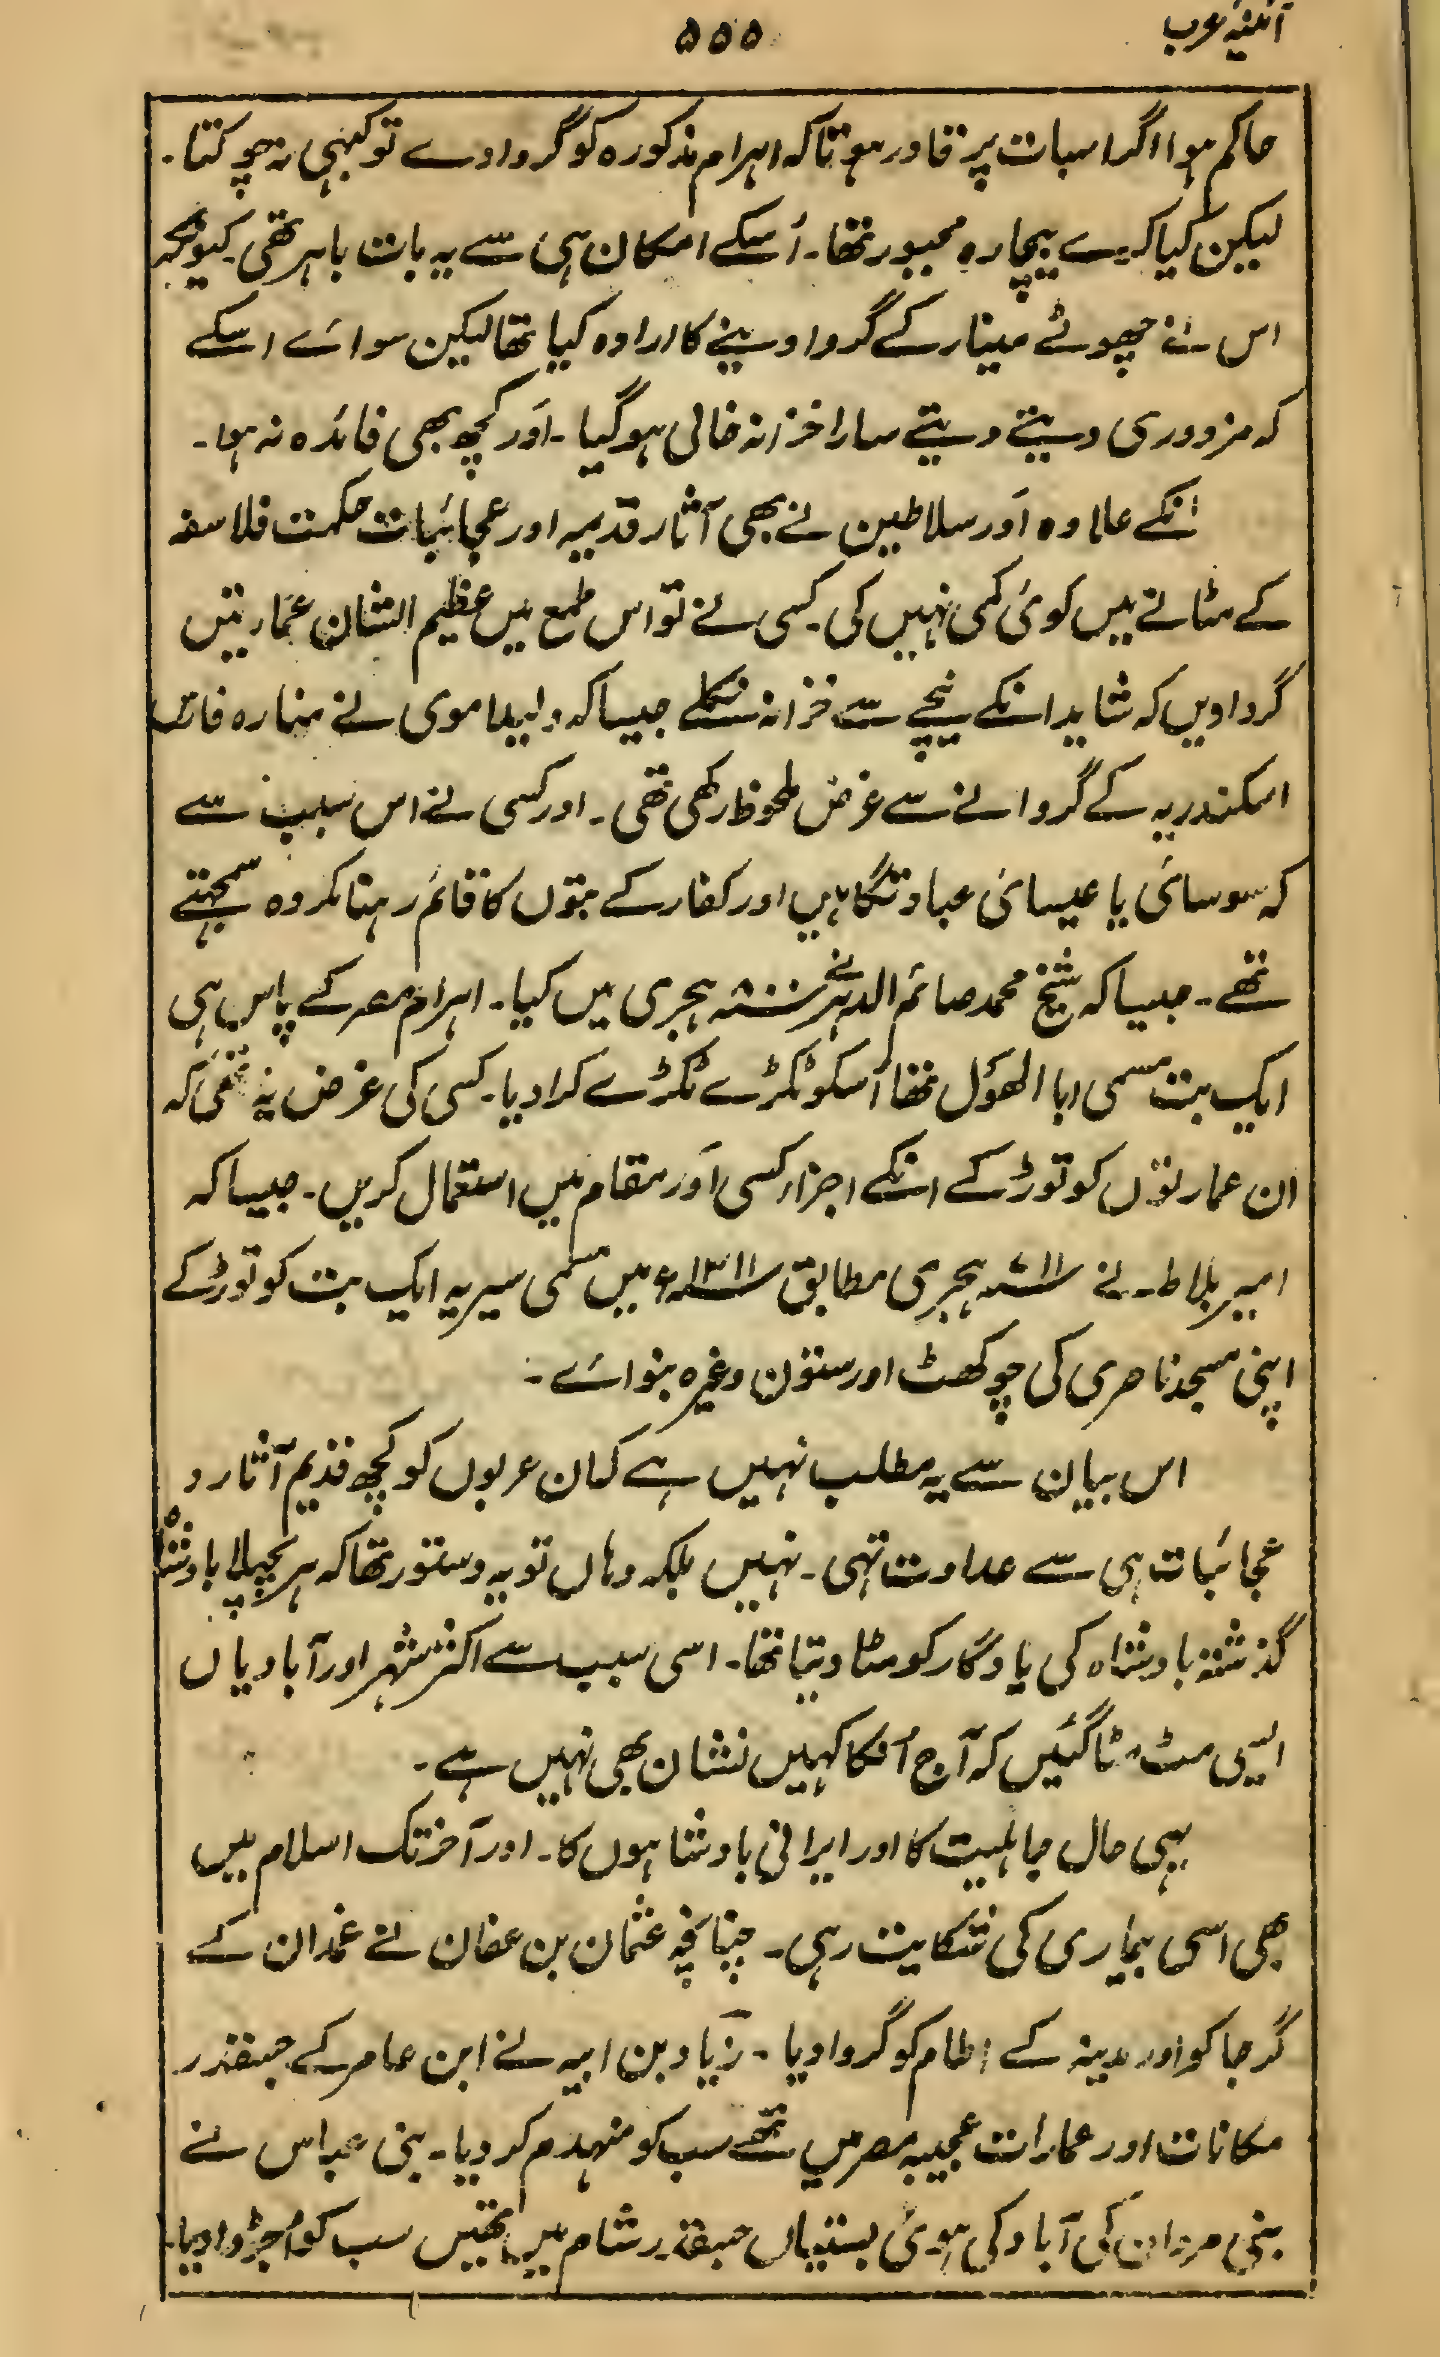 آئینہ عرب
۵۵۵
حاکم ہوا اگر اسبات پر قادر ہوتا کہ اہرام مذکورہ کو گروادے تو کبہی نہ چوکتا۔
لیکن کیا کرے بیچارہ مجبور تھا۔ اُسکے امکان ہی سے یہ بات باہر تھی کیونکہ
اس نے چھوٹے مینار کے گروا دینے کا ارادہ کیا تھا لیکن سوائے اسکے
کہ مزدوری دیتے دیتے سارا خزانہ خالی ہو گیا۔ اَور کچھ بھی فائدہ نہ ہوا۔
انکے علاوہ اَور سلاطین نے بھی آثار قدیمہ اور عجائبات حکمت فلاسفہ
کے مٹانے میں کوئی کمی نہیں کی۔ کسی نے تو اس طمع میں عظیم الشان عمارتیں
گروادیں کہ شاید انکے نیچے سے خزانہ نکلے جیسا کہ ولید اموی نے منارہ فانوس
اسکندریہ کے گروانے سے غرض ملحوظ رکھی تھی۔ اور کسی نے اس سبب سے
کہ موسائی یا عیسائی عبادتگاہیں اور کفار کے بتوں کا قائم رہنا مکروہ سمجہتے
تھے۔ جیسا کہ شیخ محمد صائم الدہر نے سنہ ۸۰۰ ہجری میں کیا۔ اہرام مصر کے پاس ہی
ایک بت مسمی ابا الھَول تھا اُسکو ٹکڑے ٹکڑے کرا دیا۔ کسی کی غرض یہ تھی کہ
ان عمارتوں کو توڑ کے انکے اجزاء کسی اَور مقام میں استعمال کریں۔ جیسا کہ
امیر بلاط نے سنہ ۷۱۱ ہجری مطابق سنہ ۱۳۱۱ء میں مسمی سیریہ ایک بت کو توڑ کے
اپنی مسجد ناصری کی چوکھٹ اور ستون وغیرہ بنوائے۔
اس بیان سے یہ مطلب نہیں ہے کہ ان عربوں کو کچھ قدیم آثار و
عجائبات ہی سے عداوت تہی۔ نہیں بلکہ وہاں تو یہ دستور تھا کہ ہر پچھلا بادشاہ
گذشتہ بادشاہ کی یادگار کو مٹا دیتا تھا۔ اسی سبب سے اکثر شہر اور آبادیاں
ایسی مٹ مٹا گئیں کہ آج اُنکا کہیں نشان بھی نہیں ہے۔
یہی حال جاہلیت کا اور ایرانی بادشاہوں کا۔ اور آخر تک اسلام میں
بھی اسی بیماری کی شکایت رہی۔ چنانچہ عثمان بن عفان نے غمدان کے
گرجا کو اور مدینہ کے اطام کو گروادیا۔ زیاد بن ابیہ نے ابن عامر کے جسقدر
مکانات اور عمارات عجیبہ مصر میں تھے سب کو منہدم کر دیا۔ بنی عباس نے
بنی مروان کی آباد کی ہوئی بستیاں جسقدر شام میں تھیں سب کو اُجڑوا دیا۔